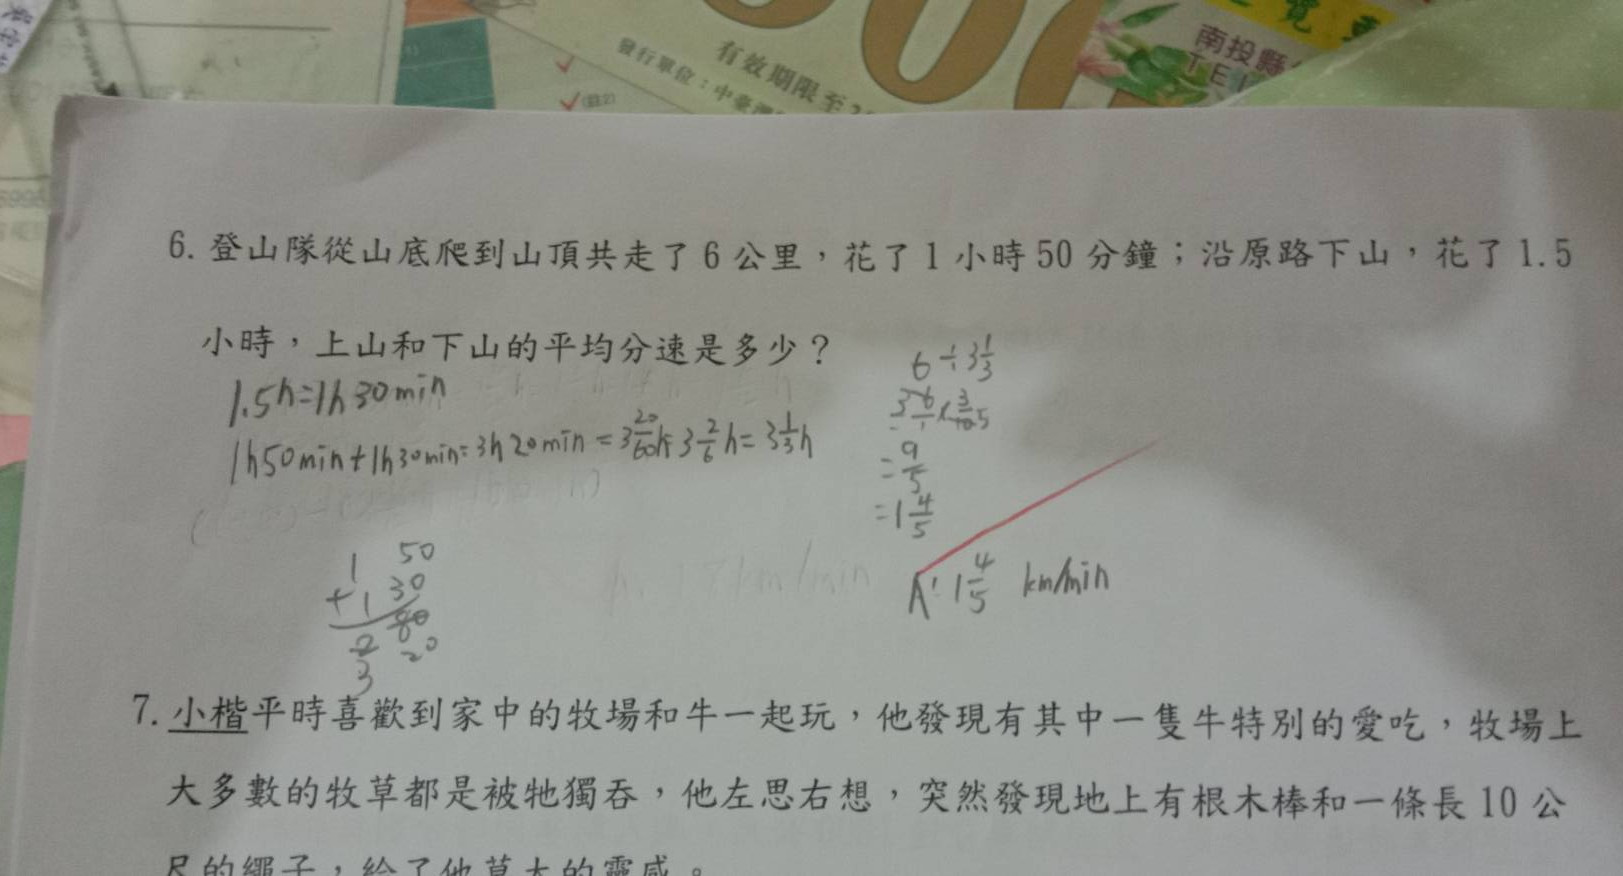 有效期限至
發行單位：中臺
(註2)
南投縣
6. 登山隊從山底爬到山頂共走了 6 公里，花了 1 小時 50 分鐘；沿原路下山，花了 1.5
小時，上山和下山的平均分速是多少？
1.5h=1h30min
1h50min+1h30min=3h20min=3 20/60 h=3 2/6 h=3 1/3 h
6÷3 1/3
= 9/5
=1 4/5
A:1 4/5 km/min
1 50
+1 30
2 80
3 20
7. 小楷平時喜歡到家中的牧場和牛一起玩，他發現有其中一隻牛特別的愛吃，牧場上
大多數的牧草都是被牠獨吞，他左思右想，突然發現地上有根木棒和一條長 10 公
尺的繩子，給了他莫大的靈感。